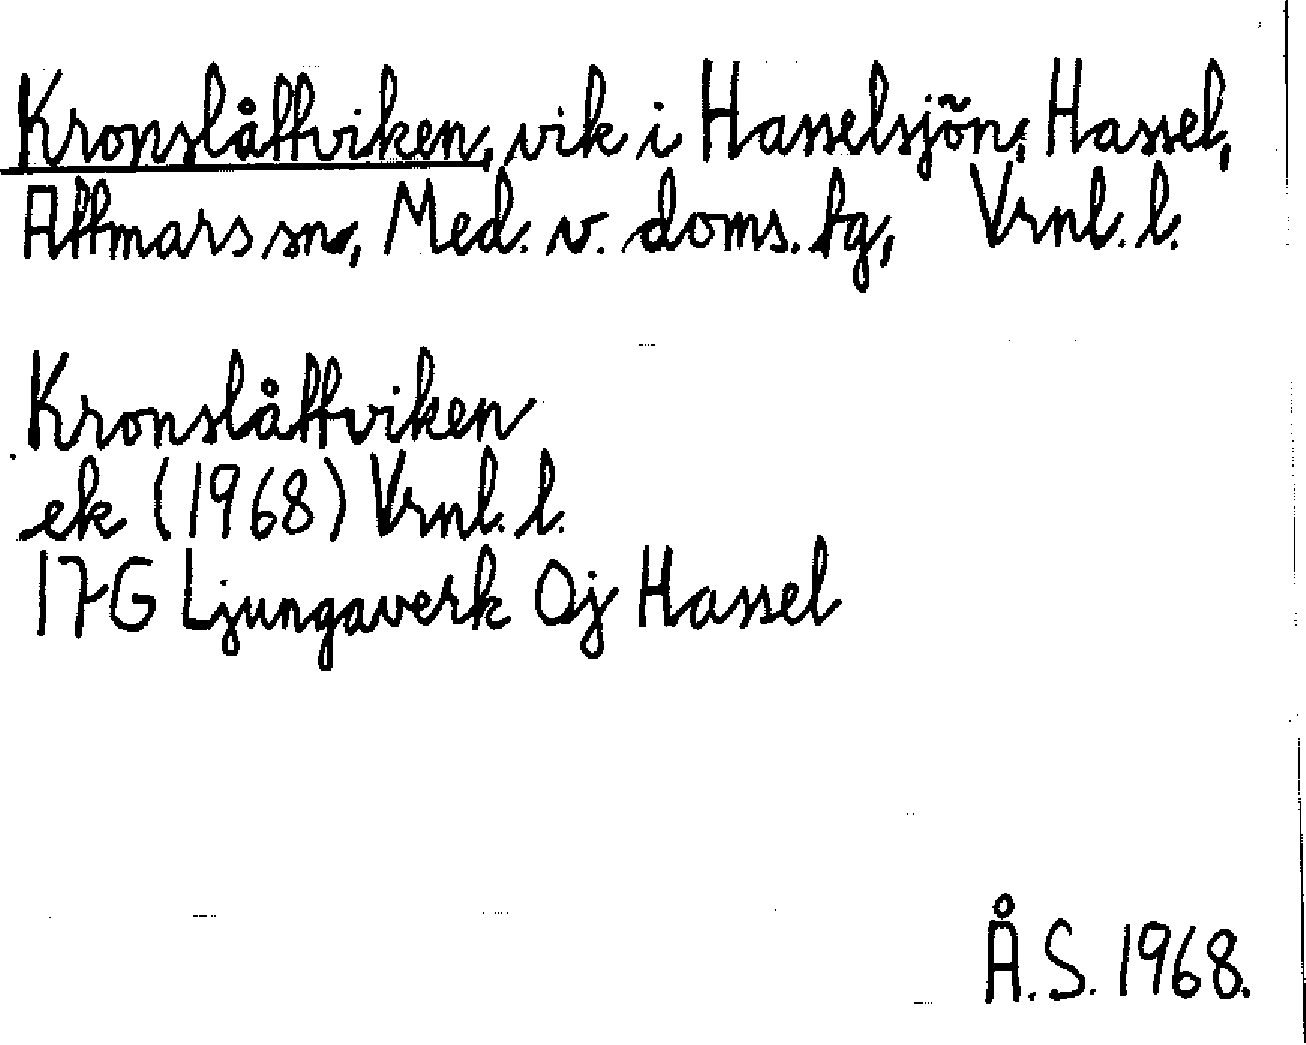 Kronslåttviken, vik i Hasselsjön, Hassel,
Attmars sn, Med. v. doms. tg, Vrnl. l.
Kronslåttviken
ek (1968) Vrnl. l.
17G Ljungaverk 0j Hassel
Å.S. 1968.